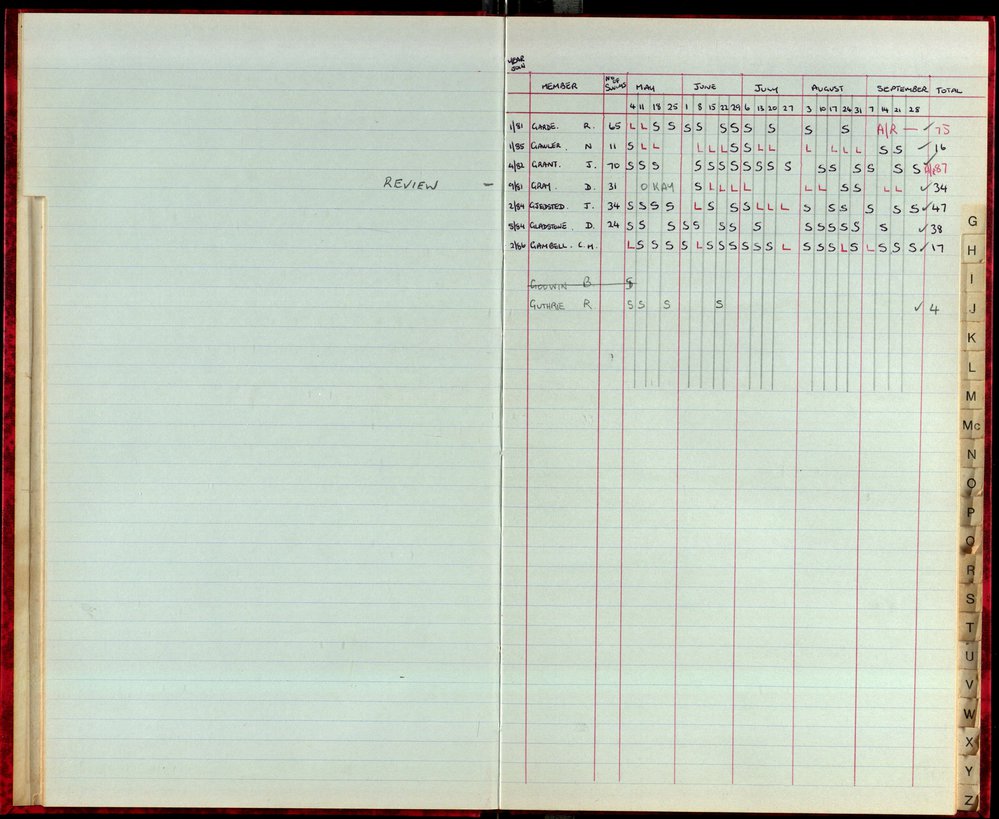 REVIEW -
YEAR JOIN MEMBER Nº OF SWIMS MAY JUNE JULY AUGUST SEPTEMBER TOTAL
4 11 18 25 1 8 15 22 29 6 13 20 27 3 10 17 24 31 7 14 21 28
1/81 GARDE. R. 65 L L S S S S S S S S S S A/R — ✓ 75
1/85 GAWLER. N 11 S L L L L L S S L L L L L L S S ✓ 16
4/82 GRANT. J. 70 S S S S S S S S S S S S S S S S S ✓ 87
9/81 GRAY. D. 31 O KAY S L L L L L L S S L L ✓ 34
2/84 GJEDSTED. J. 34 S S S S L S S S L L L S S S S S S ✓ 47
5/84 GLADSTONE. D. 24 S S S S S S S S S S S S S ✓ 38
2/86 GAMBELL. C.M. L S S S S L S S S S S S L S S S L S L S S S ✓ 17
GODWIN B S
GUTHRIE R S S S S ✓ 4
G
H
I
J
K
L
M
Mc
N
O
P
Q
R
S
T
U
V
W
X
Y
Z